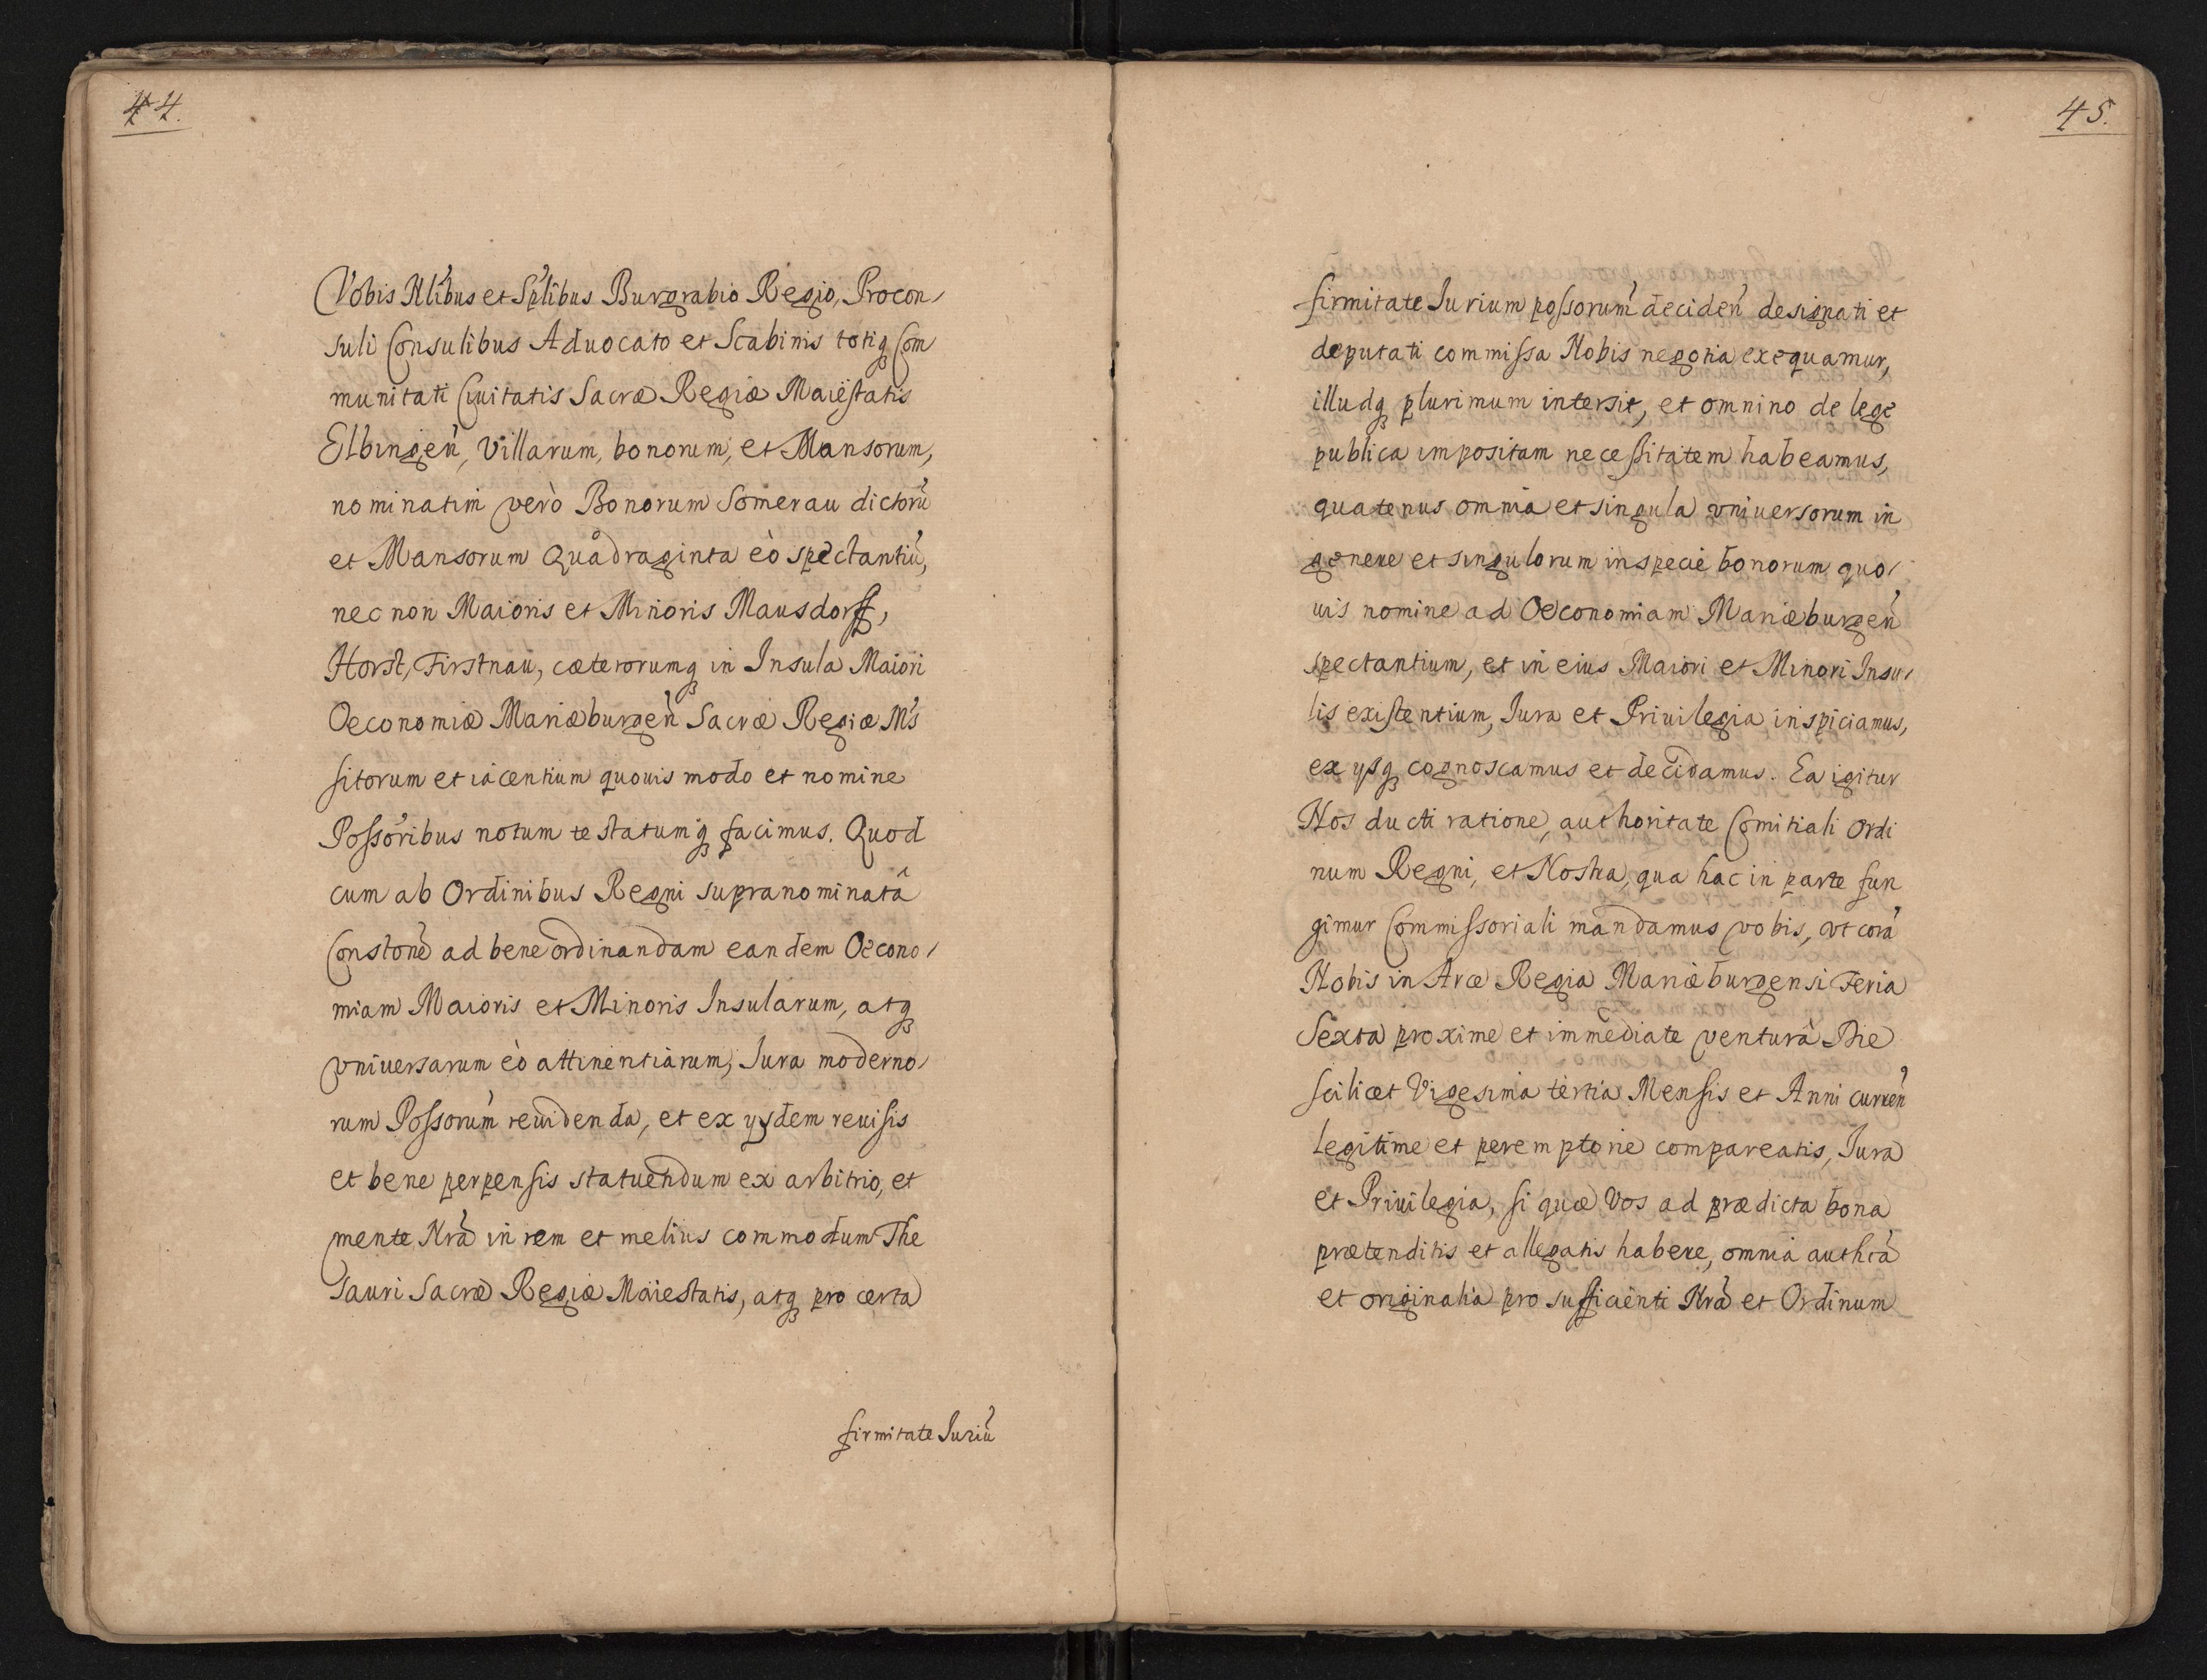 44.
Vobis Nlibus et Splibus Burgrabio Regio, Procon,
suli Consulibus Aduocato et Scabinis totiq Com
munitati Ciuitatis Sacræ Regiæ Maiestatis
Elbingen, Villarum, bonorum, et Mansorum,
nominatim verò Bonorum Somerau dictorũ
et Mansorum Quadraginta eò spectantiũ,
nec non Maioris et Minoris Mausdorff,
Horst, Firstnau, cæterorumq in Insula Maiori
Oeconomiæ Mariæburgen Sacræ Regiæ Ms
sitorum et iacentium quouis modo et nomine
Possoribus notum testatumq facimus. Quod
cum ab Ordinibus Regni supranominatâ
Constone ad bene ordinandam eandem Oecono,
miam Maioris et Minoris Insularum, atq
vniuersarum eò attinentiarum, Iura moderno,
rum Possorum reuidenda, et ex ysdem reuisis
et bene perpensis statuendum ex arbitrio, et
mente Nra in rem et melius commodum The
sauri Sacræ Regiæ Maiestatis, atq pro certa
firmitate Iuriũ
45.
firmitate Iurium possorum deciden designati et
deputati commissa Nobis negotia exequamur,
illudq plurimum intersit, et omnino de lege
publica impositam necessitatem habeamus,
quatenus omnia et singula vniuersorum in
genere et singulorum in specie bonorum quo,
uis nomine ad Oeconomiam Mariæburgen
spectantium, et in eius Maiori et Minori Insu,
lis existentium, Iura et Priuilegia inspiciamus,
ex ysq cognoscamus et decidamus. Ea igitur
Nos ducti ratione, authoritate Comitiali Ordi
num Regni, et Nostra, qua hac in parte fun
gimur Commissoriali mandamus vobis, vt corã
Nobis in Arce Regia Mariæburgensi Feria
Sexta proxime et immediate ventura Die
scilicet Vigesima tertia Mensis et Anni curren
legitime et peremptorie compareatis, Iura
et Priuilegia, si quæ Vos ad prædicta bona
prætenditis et allegatis habere, omnia authca
et originalia pro sufficienti Nra et Ordinum